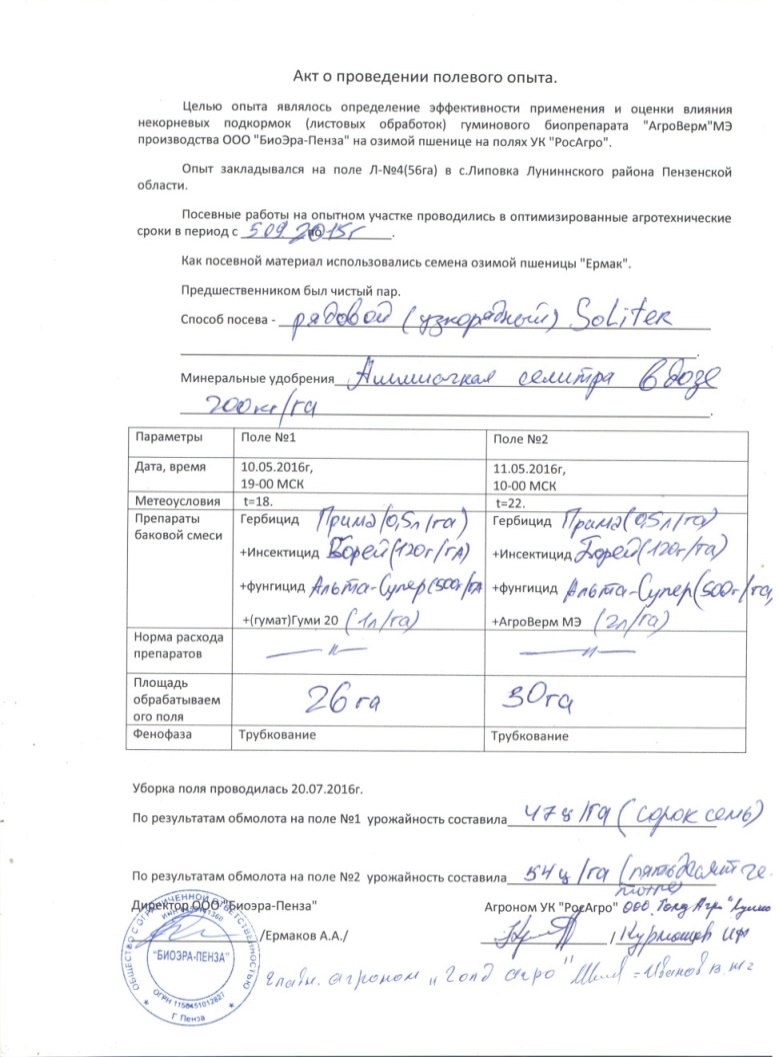 Акт о проведении полевого опыта.
Целью опыта являлось определение эффективности применения и оценки влияния
некорневых подкормок (листовых обработок) гуминового биопрепарата "АгроВерм"МЭ
производства ООО "БиоЭра-Пенза" на озимой пшенице на полях УК "РосАгро".
Опыт закладывался на поле Л-№4(56га) в с.Липовка Луниннского района Пензенской
области.
Посевные работы на опытном участке проводились в оптимизированные агротехнические
сроки в период с 5 09 2015г.
Как посевной материал использовались семена озимой пшеницы "Ермак".
Предшественником был чистый пар.
Способ посева - рядовой (узкорядный) Soliter
Минеральные удобрения Аммиачная селитра в дозе
200кг/га.
Параметры Поле №1 Поле №2
Дата, время 10.05.2016г, 11.05.2016г,
19-00 МСК 10-00 МСК
Метеоусловия t=18. t=22.
Препараты Гербицид Прима (0,5л/га) Гербицид Прима (0,5л/га)
баковой смеси +Инсектицид Борей (120г/га) +Инсектицид Борей (120г/га)
+фунгицид Альта-Супер (500г/га +фунгицид Альта-Супер (500г/га)
+(гумат)Гуми 20 (1л/га) +АгроВерм МЭ (2л/га)
Норма расхода —"— —"—
препаратов
Площадь 26 га 30га
обрабатываем
ого поля
Фенофаза Трубкование Трубкование
Уборка поля проводилась 20.07.2016г.
По результатам обмолота на поле №1 урожайность составила 47ц/га (сорок семь)
По результатам обмолота на поле №2 урожайность составила 54ц/га (пятьдесят че
тыре)
Директор ООО "Биоэра-Пенза" Агроном УК "РосАгро" ООО Голд Агро
/Ермаков А.А./
Главн. агроном "Голд агро"
ОБЩЕСТВО С ОГРАНИЧЕННОЙ ОТВЕТСТВЕННОСТЬЮ
"БИОЭРА-ПЕНЗА"
ОГРН 1156451012827
Г Пенза